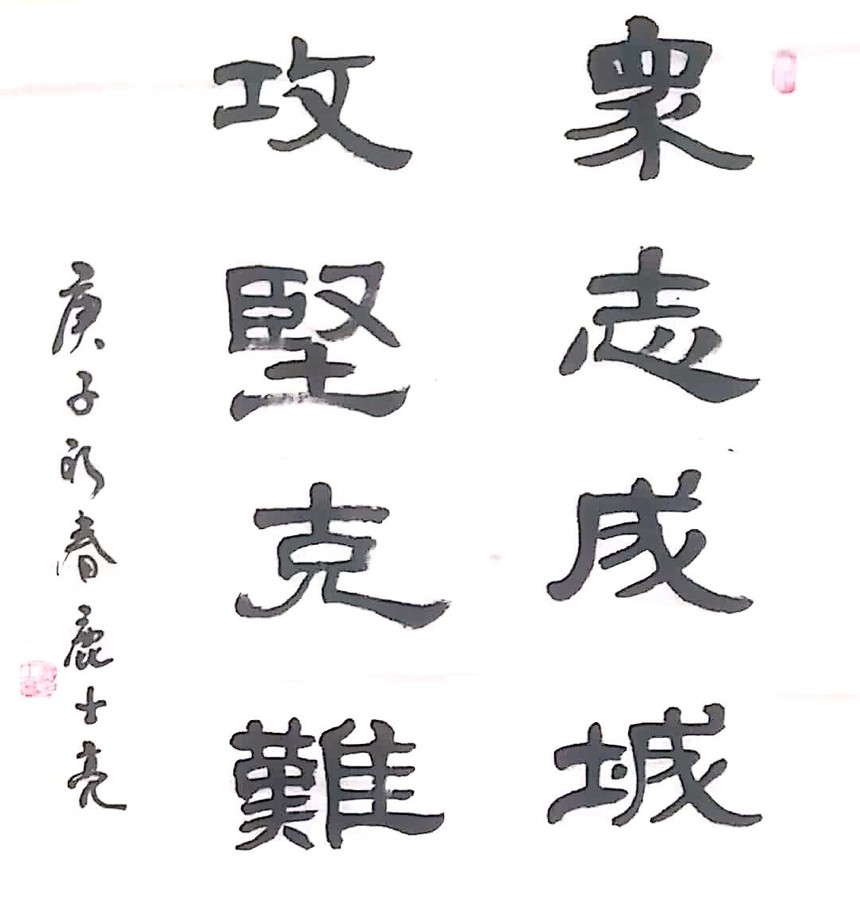 衆志成城
攻堅克難
庚子初春鹿士亮